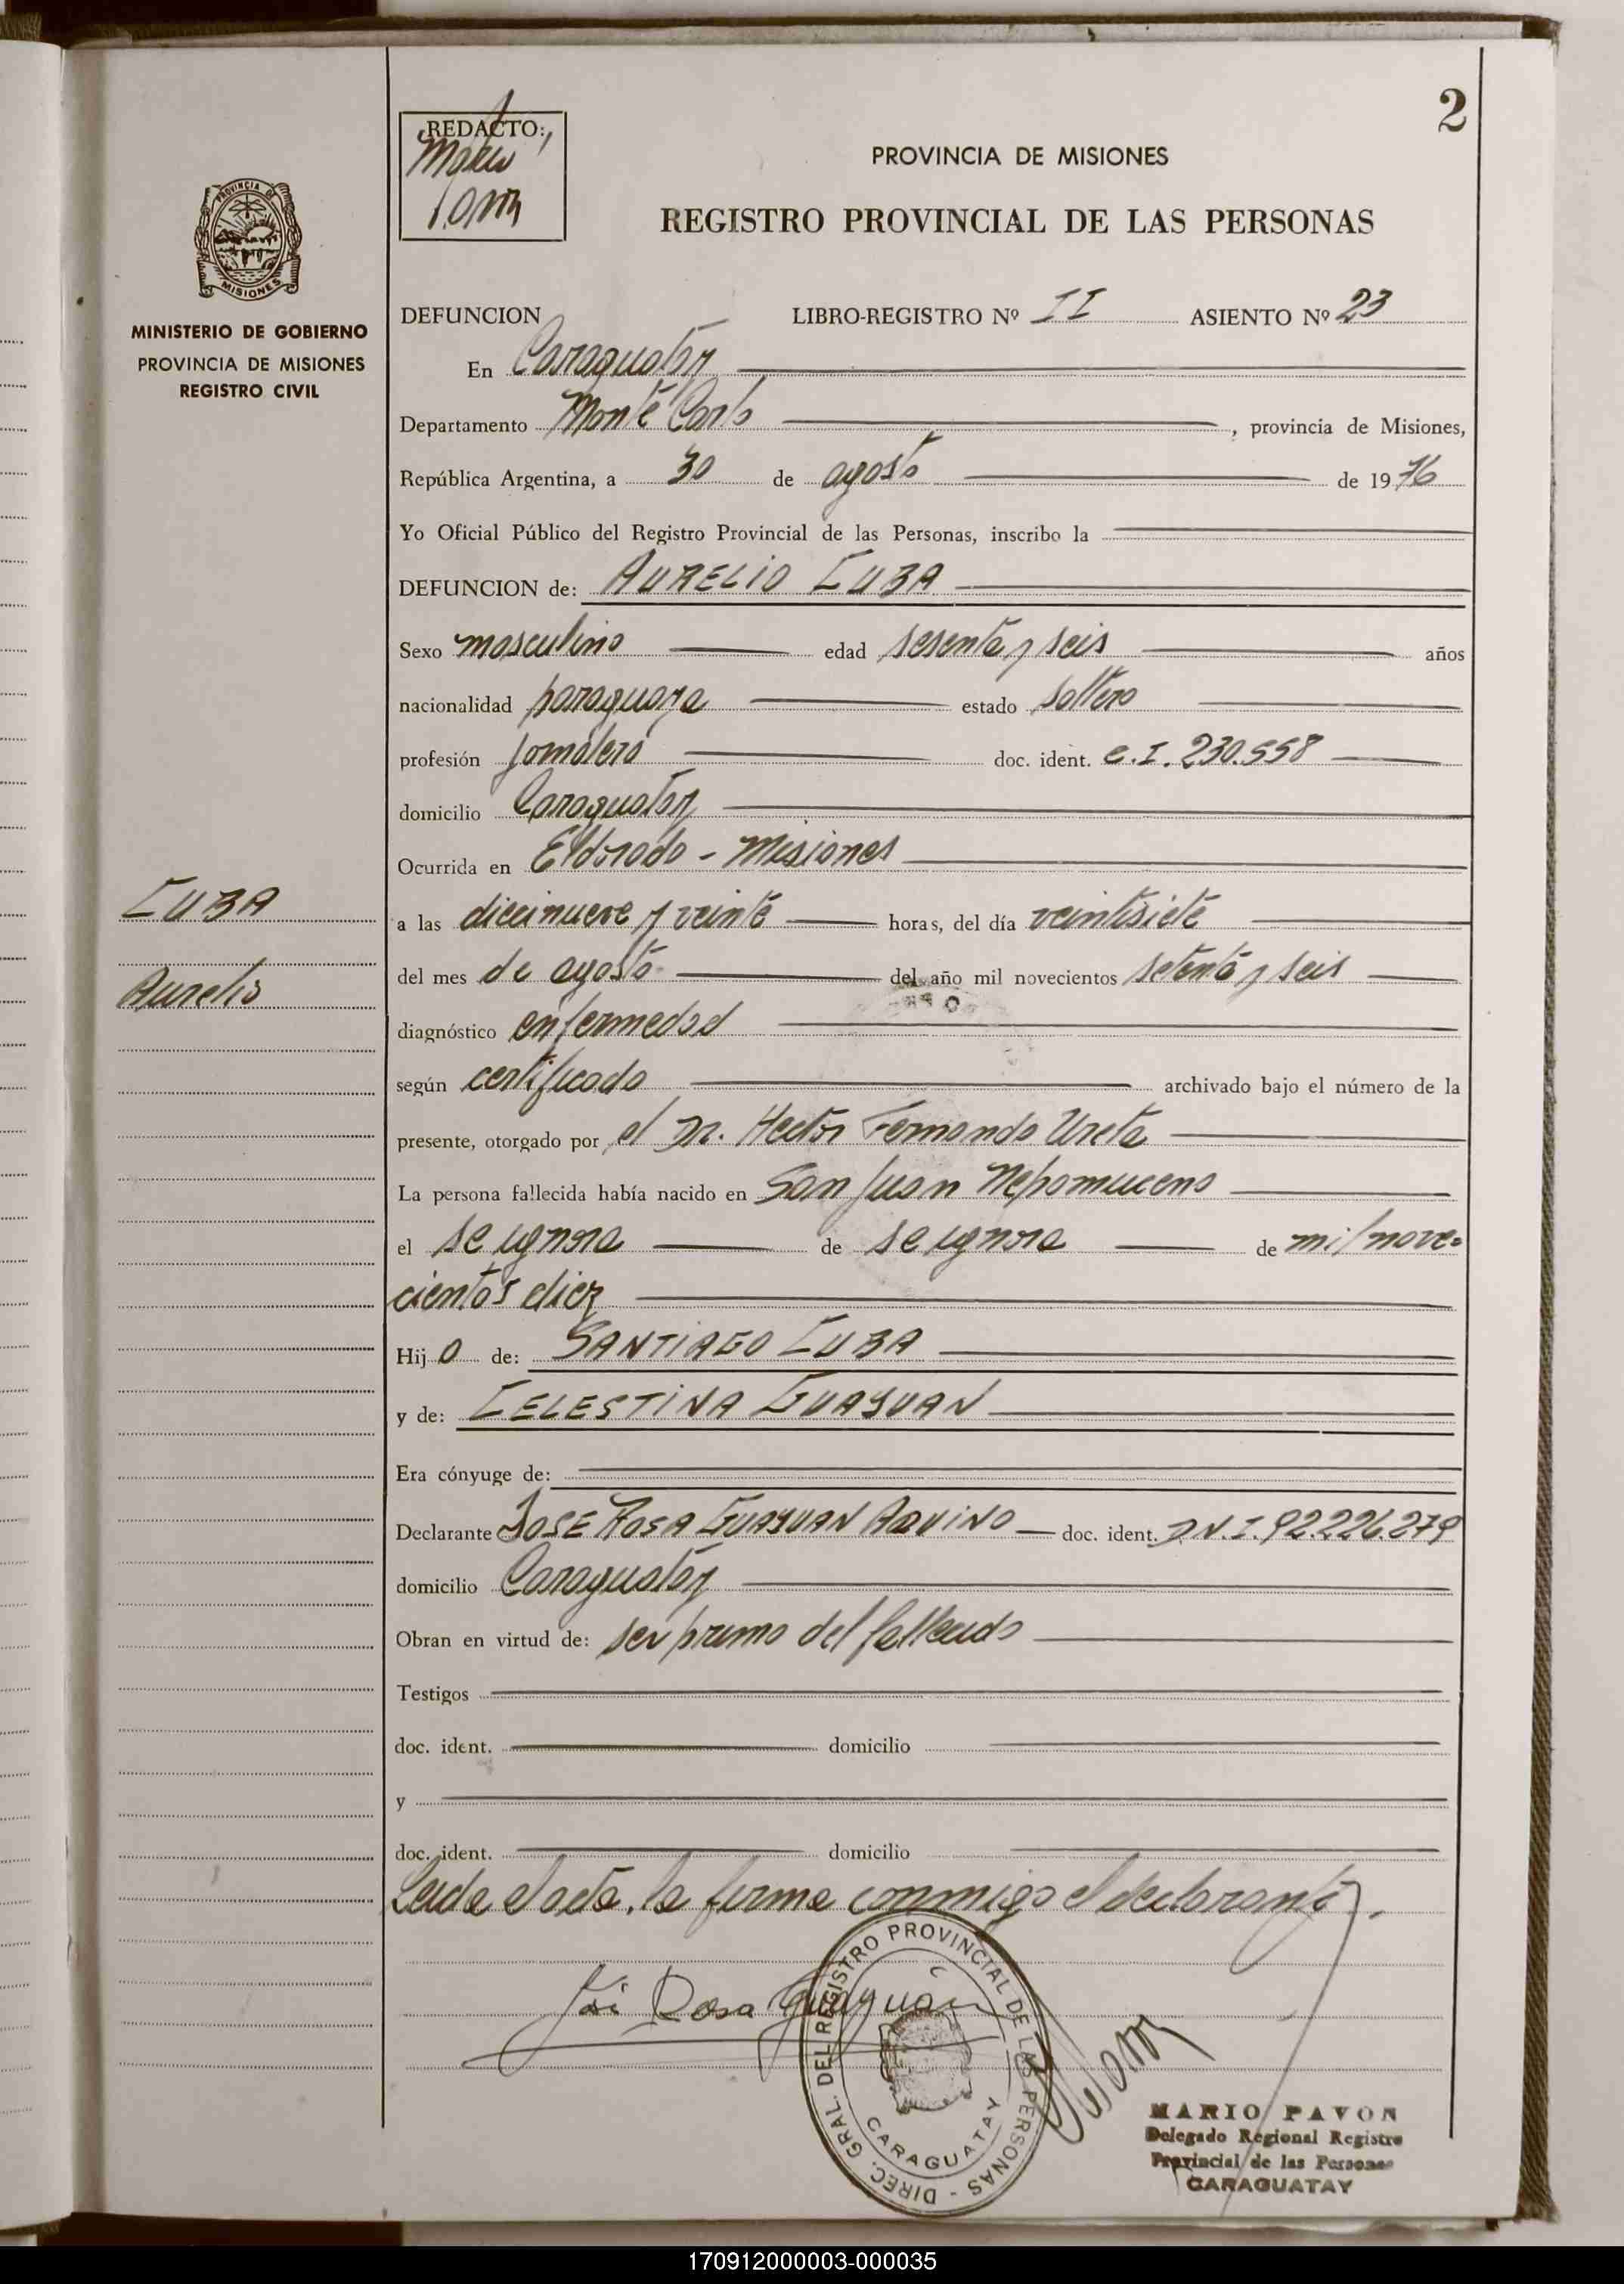 2
REDACTO:
PROVINCIA DE MISIONES
REGISTRO PROVINCIAL DE LAS PERSONAS
PROVINCIA DE
MISIONES
MINISTERIO DE GOBIERNO
PROVINCIA DE MISIONES
REGISTRO CIVIL
DEFUNCION LIBRO-REGISTRO Nº II ASIENTO Nº 23
En Caraguatay
Departamento Monte Carlo, provincia de Misiones,
República Argentina, a 30 de agosto de 1976
Yo Oficial Público del Registro Provincial de las Personas, inscribo la
DEFUNCION de: AURELIO CUBA
Sexo masculino edad sesenta y seis años
nacionalidad paraguaya estado soltero
profesión jornalero doc. ident. C.I. 230.558
domicilio Caraguatay
Ocurrida en Eldorado - Misiones
CUBA
Aurelio
a las diecinueve y veinte horas, del día veintisiete
del mes de agosto del año mil novecientos setenta y seis
diagnóstico enfermedad
según certificado archivado bajo el número de la
presente, otorgado por el Dr. Hector Fernando Ureta
La persona fallecida había nacido en San Juan Nepomuceno
el se ignora de se ignora de mil nove-
cientos diez
Hijo de: SANTIAGO CUBA
y de: CELESTINA GUAYUAN
Era cónyuge de:
Declarante JOSE ROSA GUAYUAN AQUINO doc. ident. D.N.I. 92.226.279
domicilio Caraguatay
Obran en virtud de: ser primo del fallecido
Testigos
doc. ident. domicilio
y
doc. ident. domicilio
Leida el acta, la firma conmigo el declarante.
José Rosa Guayuan
DIREC. GRAL. DEL REGISTRO PROVINCIAL DE LAS PERSONAS -
CARAGUATAY
MARIO PAVON
Delegado Regional Registro
Provincial de las Personas
CARAGUATAY
170912000003-000035